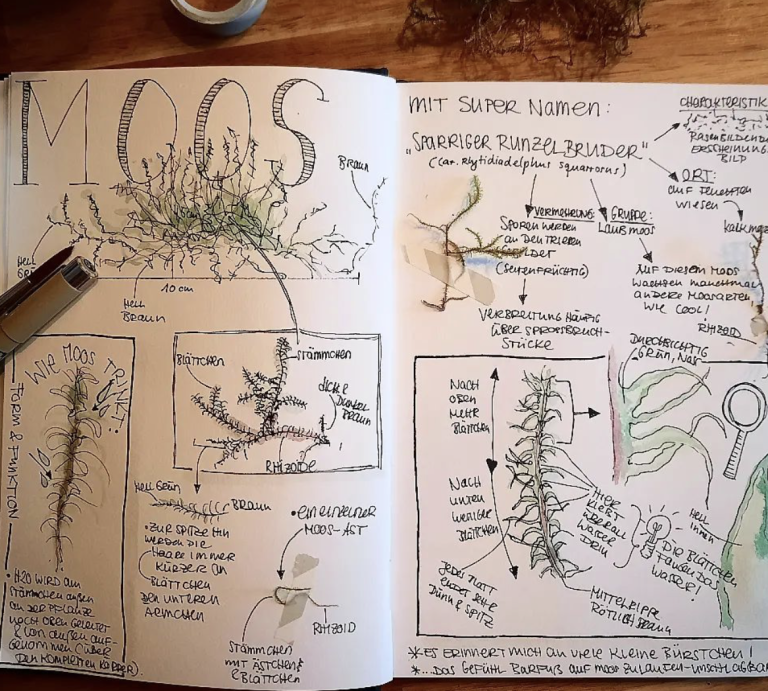 MOOS
BRAUN
HELL
10 cm
HELL
BRAUN
WIE MOOS TRINKT:
FORM & FUNKTION
• H2O WIRD AM
STÄMMCHEN AUßEN
AN DER PFLANZE
NACH OBEN GELEITET
& VON AUßEN AUF-
GENOMMEN (ÜBER
DEN KOMPLETTEN KÖRPER).
BLÄTTCHEN
STÄMMCHEN
DICK &
DUNKEL
BRAUN
RHIZOIDE
HELL GRÜN
BRAUN
• ZUR SPITZE HIN
WERDEN DIE
HAARE IMMER
KÜRZER
BLÄTTCHEN
DEN UNTEREN
AEMCHEN
• EIN EINZELNER
MOOS-AST
RHIZOID
STÄMMCHEN
MIT ÄSTCHEN &
BLÄTTCHEN
MIT SUPER NAMEN:
"SPARRIGER RUNZELBRUDER"
(lat. Rhytidiadelphus squarrosus)
CHARAKTERISTIK
RASENBILDEND
ERSCHEINUNGS
BILD
ORT:
AUF FEUCHTEN
WIESEN
VERMEHRUNG:
SPOREN WERDEN
AN DEN TRIEBEN
(SEITENFRÜCHTIG)
VERBREITUNG HÄUFIG
ÜBER SPROSSBRUCH-
STÜCKE
GRUPPE:
LAUBMOOS
AUF DIESEM MOOS
WACHSEN MANCHMAL
ANDERE MOOSARTEN
WIE COOL!
RHIZOID
DURCHSICHTIG
GRÜN, NASS
NACH
OBEN
MEHR
BLÄTTCHEN
NACH
UNTEN
WENIGER
BLÄTTCHEN
JEDES BLATT
ENDET SEHR
DÜNN & SPITZ
HIER
KLEBT
ÜBERALL
WASSER
DRIN
DIE BLÄTTCHEN
FANGEN DAS
WASSER!
HELL
INNEN
MITTELRIPPE
RÖTLICH BRAUN
*ES ERINNERT MICH AN VIELE KLEINE BÜRSTCHEN!
*...DAS GEFÜHL BARFUß AUF MOOS ZU LAUFEN-UNSCHLAGBAR